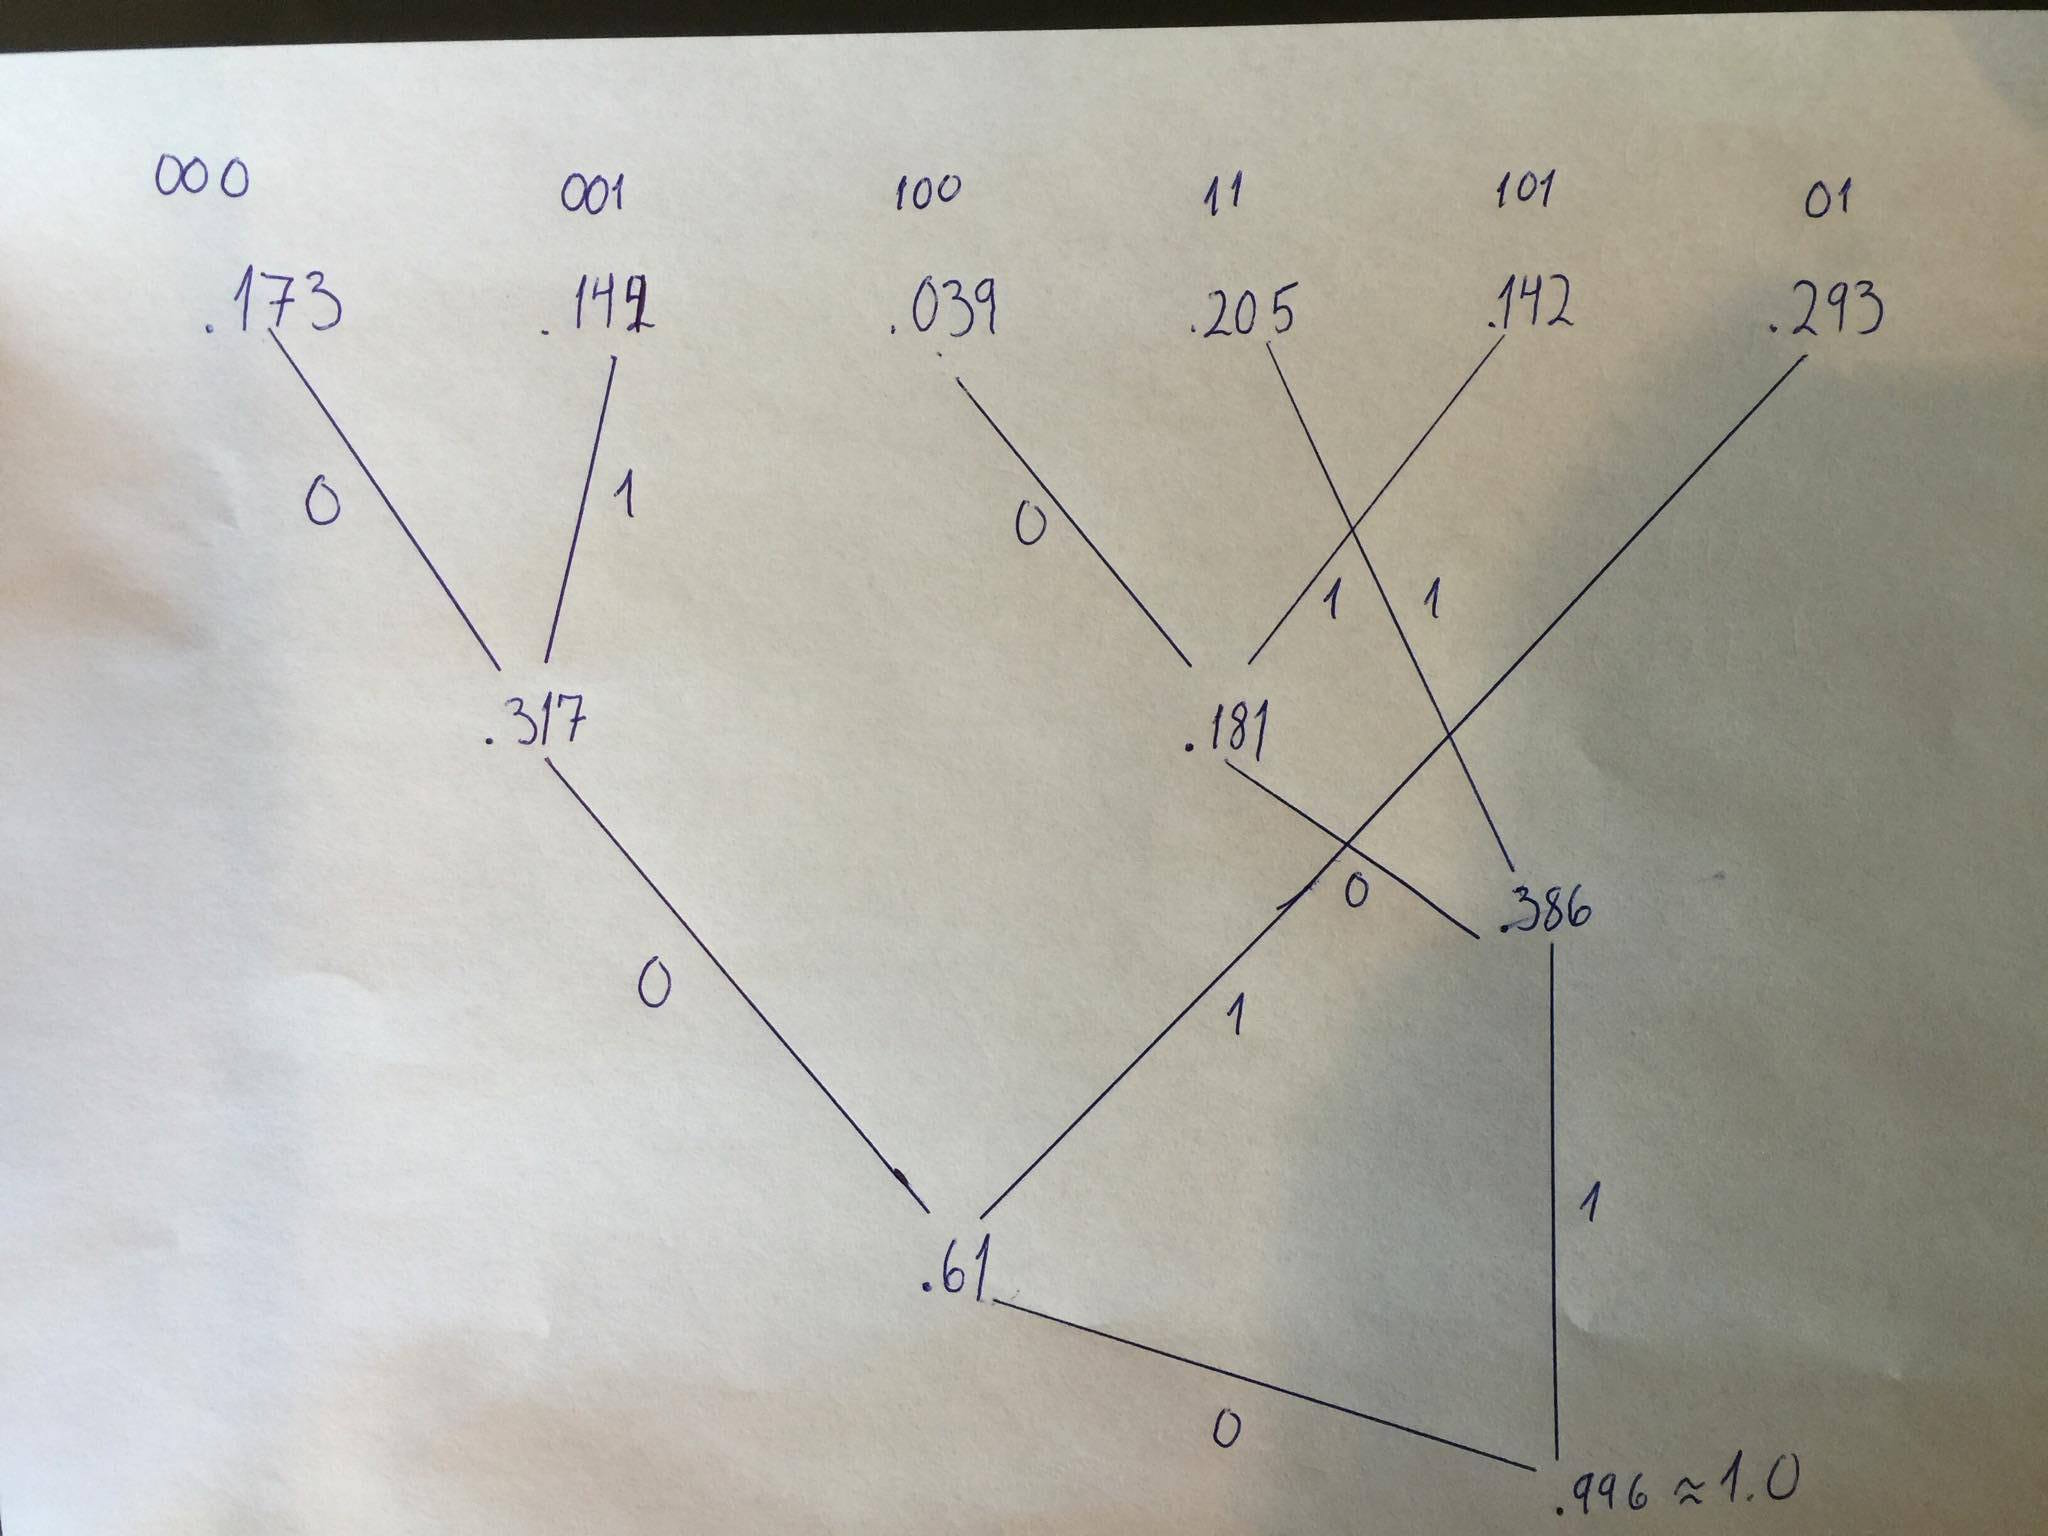 000 001 100 11 101 01
.173 .144 .039 .205 .142 .293
0 1 0 1 1
.317 .181
0 .386
0 1
1
.61
0
.996 ≈ 1.0